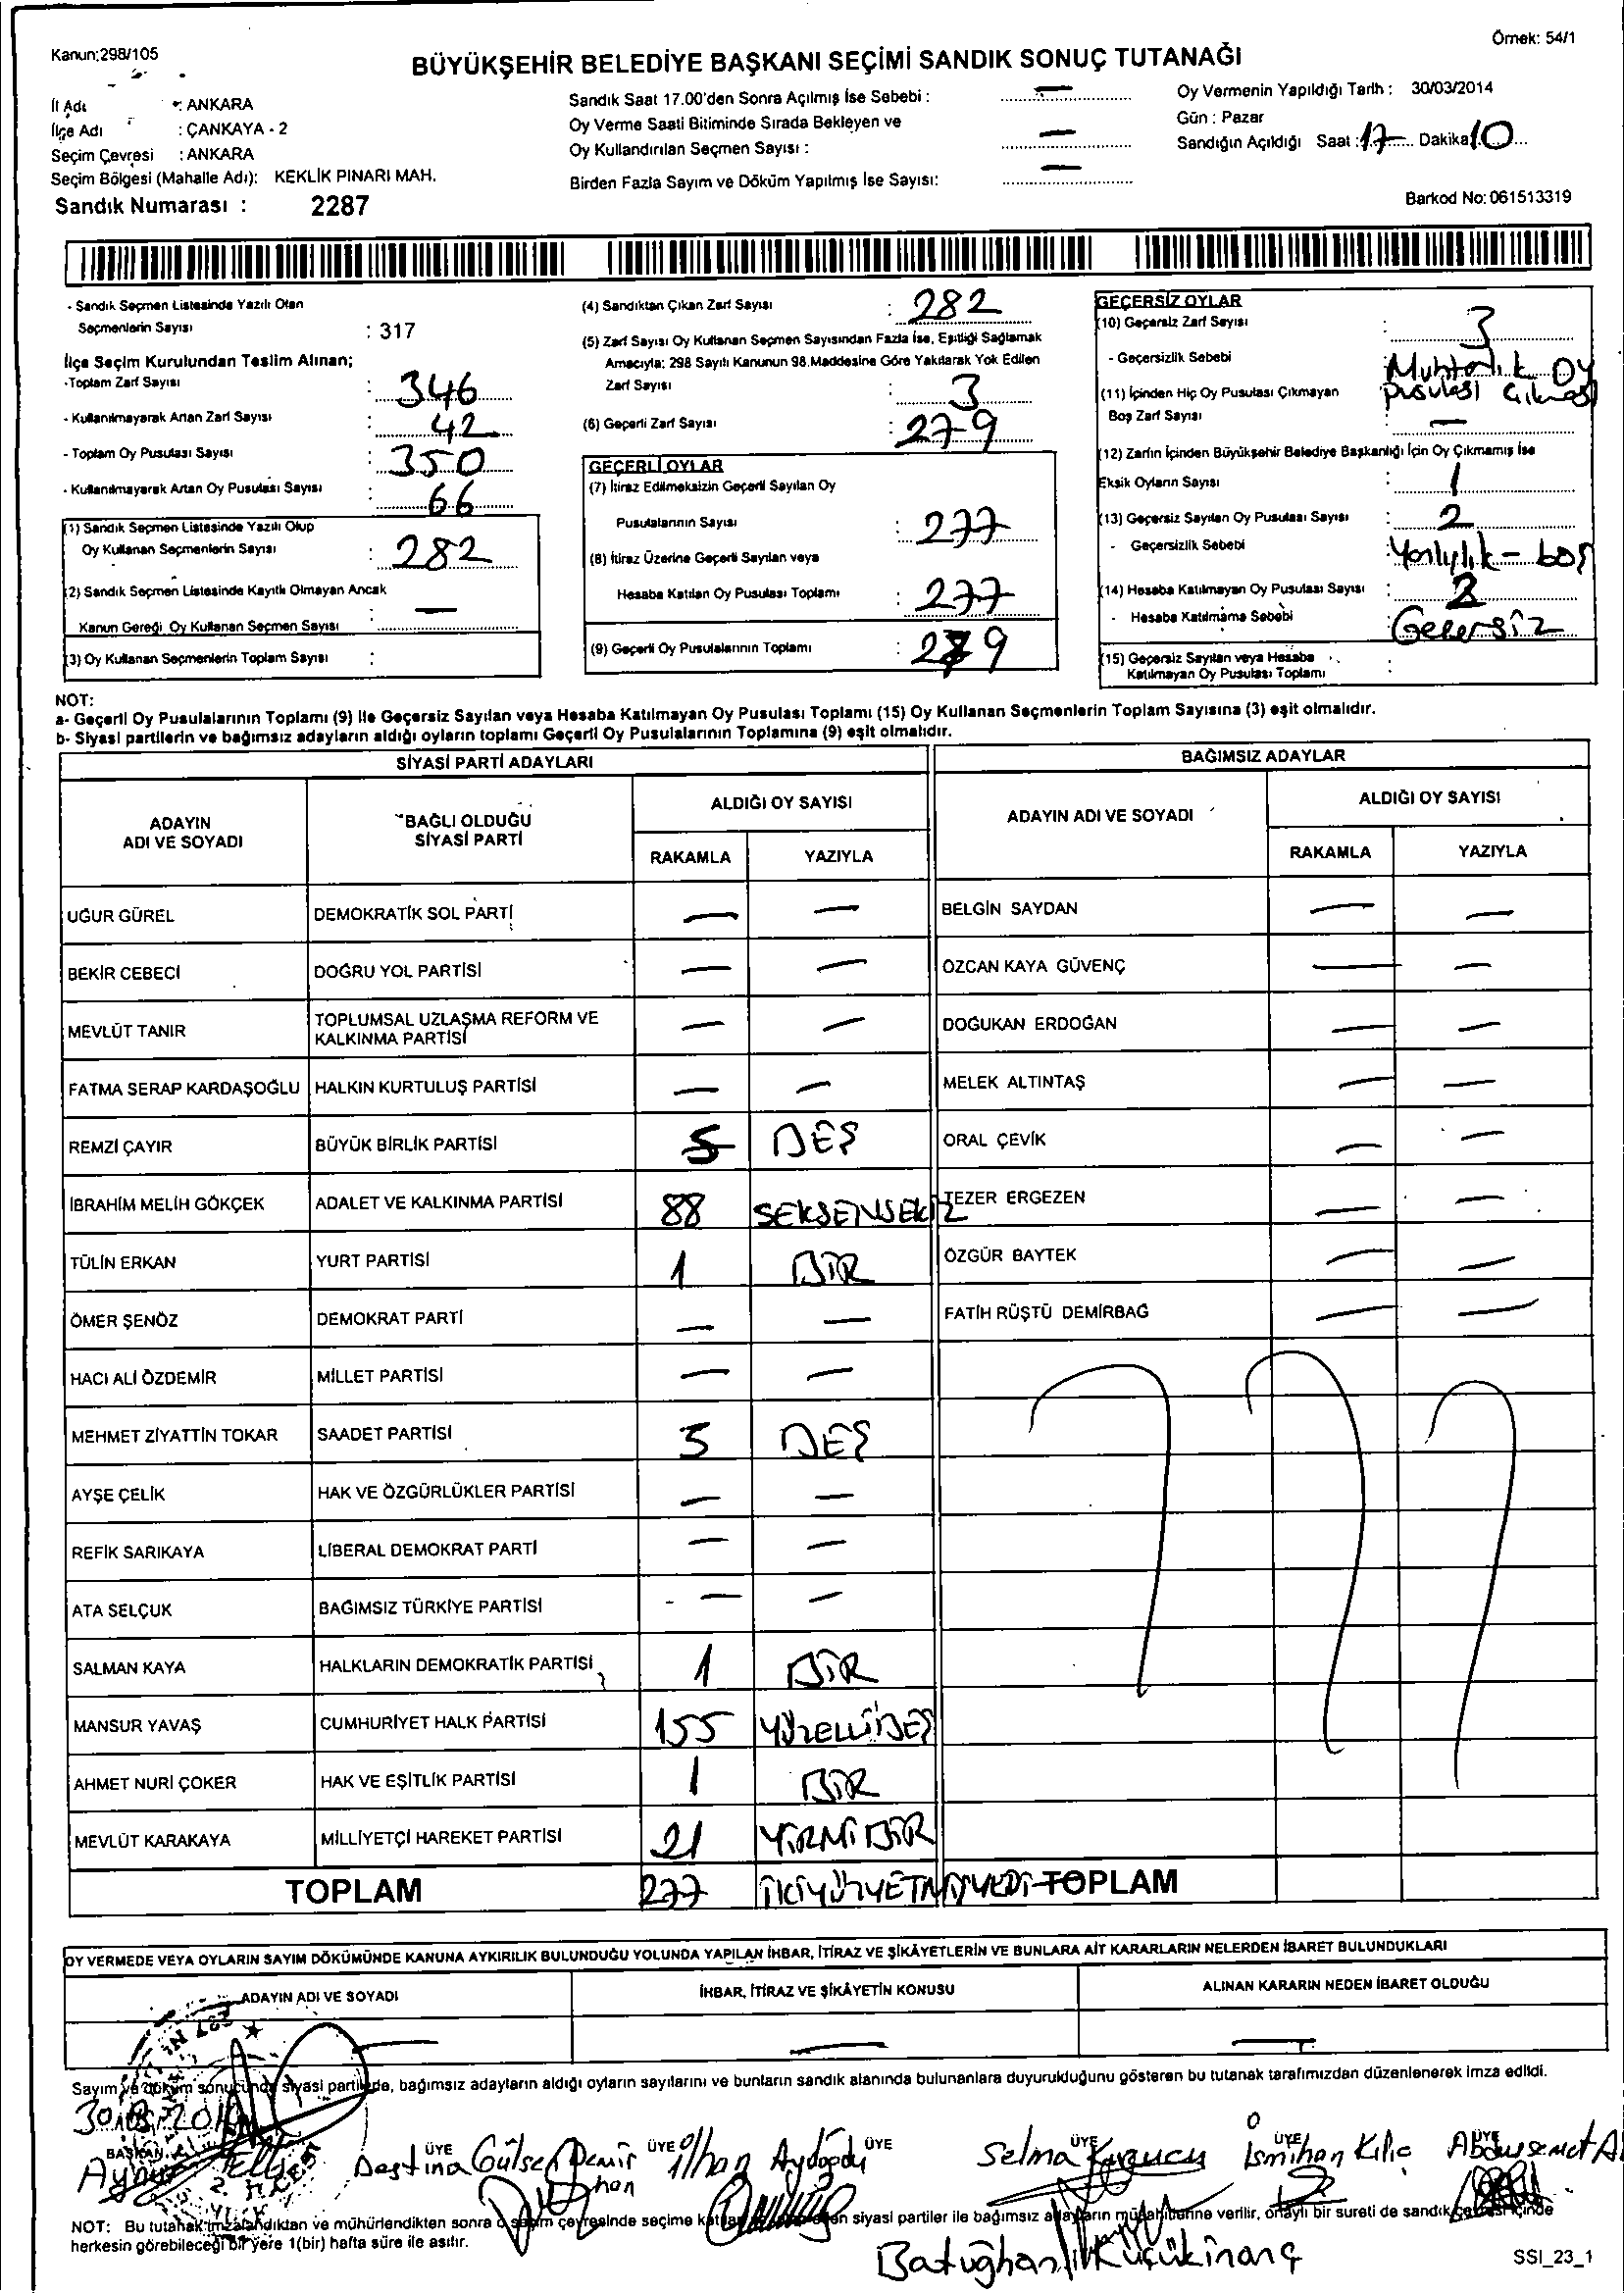 Kanun:298/105
Örnek: 54/1
BÜYÜKŞEHİR BELEDİYE BAŞKANI SEÇİMİ SANDIK SONUÇ TUTANAĞI
İl Adı : ANKARA
İlçe Adı : ÇANKAYA - 2
Seçim Çevresi : ANKARA
Seçim Bölgesi (Mahalle Adı): KEKLİK PINARI MAH.
Sandık Numarası : 2287
Sandık Saat 17.00'den Sonra Açılmış İse Sebebi : —
Oy Verme Saati Bitiminde Sırada Bekleyen ve
Oy Kullandırılan Seçmen Sayısı : —
Birden Fazla Sayım ve Döküm Yapılmış İse Sayısı: —
Oy Vermenin Yapıldığı Tarih : 30/03/2014
Gün : Pazar
Sandığın Açıldığı Saat : 17 Dakika 10
Barkod No: 061513319
- Sandık Seçmen Listesinde Yazılı Olan
Seçmenlerin Sayısı : 317
İlçe Seçim Kurulundan Teslim Alınan;
-Toplam Zarf Sayısı : 346
- Kullanılmayarak Artan Zarf Sayısı : 42
- Toplam Oy Pusulası Sayısı : 350
- Kullanılmayarak Artan Oy Pusulası Sayısı : 66
(1) Sandık Seçmen Listesinde Yazılı Olup
Oy Kullanan Seçmenlerin Sayısı : 282
(2) Sandık Seçmen Listesinde Kayıtlı Olmayan Ancak
Kanun Gereği Oy Kullanan Seçmen Sayısı : —
(3) Oy Kullanan Seçmenlerin Toplam Sayısı :
(4) Sandıktan Çıkan Zarf Sayısı : 282
(5) Zarf Sayısı Oy Kullanan Seçmen Sayısından Fazla İse, Eşitliği Sağlamak
Amacıyla: 298 Sayılı Kanunun 98.Maddesine Göre Yakılarak Yok Edilen
Zarf Sayısı : 3
(6) Geçerli Zarf Sayısı : 279
GEÇERLİ OYLAR
(7) İtiraz Edilmeksizin Geçerli Sayılan Oy
Pusulalarının Sayısı : 277
(8) İtiraz Üzerine Geçerli Sayılan veya
Hesaba Katılan Oy Pusulası Toplamı : 277
(9) Geçerli Oy Pusulalarının Toplamı : 279
GEÇERSİZ OYLAR
(10) Geçersiz Zarf Sayısı : 3
- Geçersizlik Sebebi : Muhtarlık Oy
pusulası Çıkması
(11) İçinden Hiç Oy Pusulası Çıkmayan
Boş Zarf Sayısı : —
(12) Zarfın İçinden Büyükşehir Belediye Başkanlığı İçin Oy Çıkmamış İse
Eksik Oyların Sayısı : 1
(13) Geçersiz Sayılan Oy Pusulası Sayısı : 2
- Geçersizlik Sebebi : Yanlışlık - boş
(14) Hesaba Katılmayan Oy Pusulası Sayısı : 2
- Hesaba Katılmama Sebebi : Geçersiz
(15) Geçersiz Sayılan veya Hesaba
Katılmayan Oy Pusulası Toplamı :
NOT:
a- Geçerli Oy Pusulalarının Toplamı (9) İle Geçersiz Sayılan veya Hesaba Katılmayan Oy Pusulası Toplamı (15) Oy Kullanan Seçmenlerin Toplam Sayısına (3) eşit olmalıdır.
b- Siyasi partilerin ve bağımsız adayların aldığı oyların toplamı Geçerli Oy Pusulalarının Toplamına (9) eşit olmalıdır.
SİYASİ PARTİ ADAYLARI
ADAYIN ADI VE SOYADI
BAĞLI OLDUĞU SİYASİ PARTİ
ALDIĞI OY SAYISI
RAKAMLA YAZIYLA
UĞUR GÜREL DEMOKRATİK SOL PARTİ — —
BEKİR CEBECİ DOĞRU YOL PARTİSİ — —
MEVLÜT TANIR TOPLUMSAL UZLAŞMA REFORM VE KALKINMA PARTİSİ — —
FATMA SERAP KARDAŞOĞLU HALKIN KURTULUŞ PARTİSİ — —
REMZİ ÇAYIR BÜYÜK BİRLİK PARTİSİ 5 BEŞ
İBRAHİM MELİH GÖKÇEK ADALET VE KALKINMA PARTİSİ 88 SEKSENSEKİZ
TÜLİN ERKAN YURT PARTİSİ 1 BİR
ÖMER ŞENÖZ DEMOKRAT PARTİ — —
HACI ALİ ÖZDEMİR MİLLET PARTİSİ — —
MEHMET ZİYATTİN TOKAR SAADET PARTİSİ 5 BEŞ
AYŞE ÇELİK HAK VE ÖZGÜRLÜKLER PARTİSİ — —
REFİK SARIKAYA LİBERAL DEMOKRAT PARTİ — —
ATA SELÇUK BAĞIMSIZ TÜRKİYE PARTİSİ — —
SALMAN KAYA HALKLARIN DEMOKRATİK PARTİSİ 1 BİR
MANSUR YAVAŞ CUMHURİYET HALK PARTİSİ 155 YÜZELLİBEŞ
AHMET NURİ ÇOKER HAK VE EŞİTLİK PARTİSİ 1 BİR
MEVLÜT KARAKAYA MİLLİYETÇİ HAREKET PARTİSİ 21 YİRMİBİR
TOPLAM 277 İKİYÜZYETMİŞYEDİ
BAĞIMSIZ ADAYLAR
ADAYIN ADI VE SOYADI
ALDIĞI OY SAYISI
RAKAMLA YAZIYLA
BELGİN SAYDAN — —
ÖZCAN KAYA GÜVENÇ — —
DOĞUKAN ERDOĞAN — —
MELEK ALTINTAŞ — —
ORAL ÇEVİK — —
TEZER ERGEZEN — —
ÖZGÜR BAYTEK — —
FATİH RÜŞTÜ DEMİRBAĞ — —
TOPLAM
OY VERMEDE VEYA OYLARIN SAYIM DÖKÜMÜNDE KANUNA AYKIRILIK BULUNDUĞU YOLUNDA YAPILAN İHBAR, İTİRAZ VE ŞİKÂYETLERİN VE BUNLARA AİT KARARLARIN NELERDEN İBARET BULUNDUKLARI
ADAYIN ADI VE SOYADI
İHBAR, İTİRAZ VE ŞİKÂYETİN KONUSU
ALINAN KARARIN NEDEN İBARET OLDUĞU
— — —
Sayım ve döküm sonucunda siyasi partilerde, bağımsız adayların aldığı oyların sayılarını ve bunların sandık alanında bulunanlara duyurulduğunu gösteren bu tutanak tarafımızdan düzenlenerek imza edildi.
BAŞKAN ÜYE ÜYE ÜYE ÜYE ÜYE ÜYE
Destina Gülsen Demirhan
İlhan Aydoğdu
Selma Kuzucu
İsmihan Kılıç
Abdusemet
Batuğhan Küçükinanç
NOT: Bu tutanak imzalandıktan ve mühürlendikten sonra seçim çevresinde seçime siyasi partiler ile bağımsız adayların müşahitlerine verilir, onaylı bir sureti de sandık çevresi içinde
herkesin görebileceği bir yere 1(bir) hafta süre ile asılır.
SSI_23_1